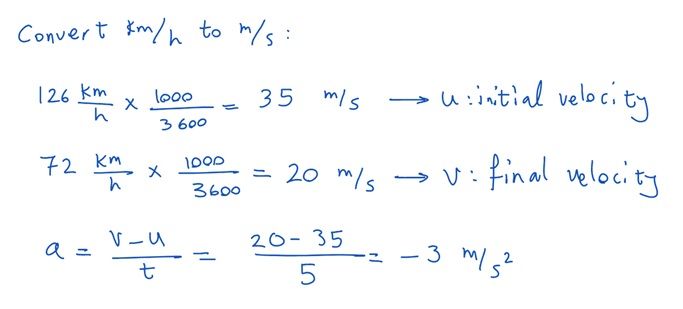 Convert km/h to m/s :
126 km/h × 1000/3600 = 35 m/s → u : initial velocity
72 km/h × 1000/3600 = 20 m/s → v : final velocity
a = v-u/t = 20-35/5 = -3 m/s²